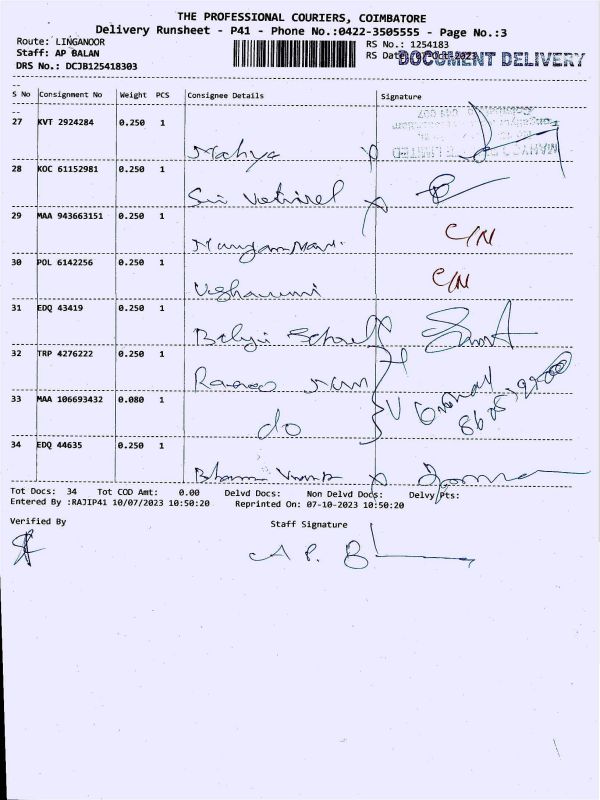 THE PROFESSIONAL COURIERS, COIMBATORE
Delivery Runsheet - P41 - Phone No.:0422-3505555 - Page No.:3
Route: LINGANOOR RS No.: 1254183
Staff: AP BALAN RS Date: 07-Oct-2023
DOCUMENT DELIVERY
DRS No.: DCJB125418303
S No Consignment No Weight PCS Consignee Details Signature
27 KVT 2924284 0.250 1
Mahyco
28 KOC 61152981 0.250 1
Sri Vetrivel
29 MAA 943663151 0.250 1
C/N
30 POL 6142256 0.250 1
C/N
31 EDQ 43419 0.250 1
Balaji
32 TRP 4276222 0.250 1
33 MAA 106693432 0.080 1
do
34 EDQ 44635 0.250 1
Tot Docs: 34 Tot COD Amt: 0.00 Delvd Docs: Non Delvd Docs: Delvy Pts:
Entered By :RAJIP41 10/07/2023 10:50:20 Reprinted On: 07-10-2023 10:50:20
Verified By Staff Signature
A P. B